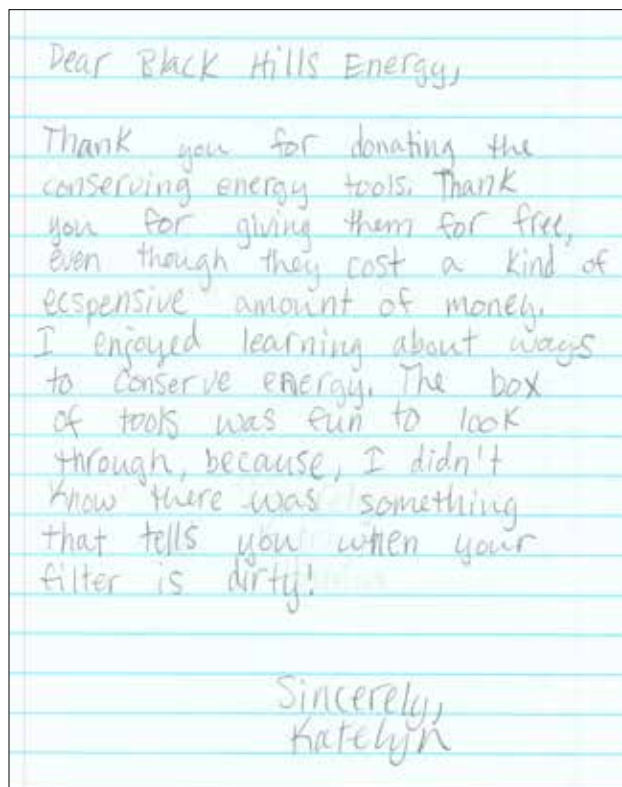 Dear Black Hills Energy,
Thank you for donating the
conserving energy tools. Thank
you for giving them for free,
even though they cost a kind of
ecspensive amount of money.
I enjoyed learning about ways
to conserve energy. The box
of tools was fun to look
through, because, I didn't
know there was something
that tells you when your
filter is dirty!
Sincerely,
Katelyn